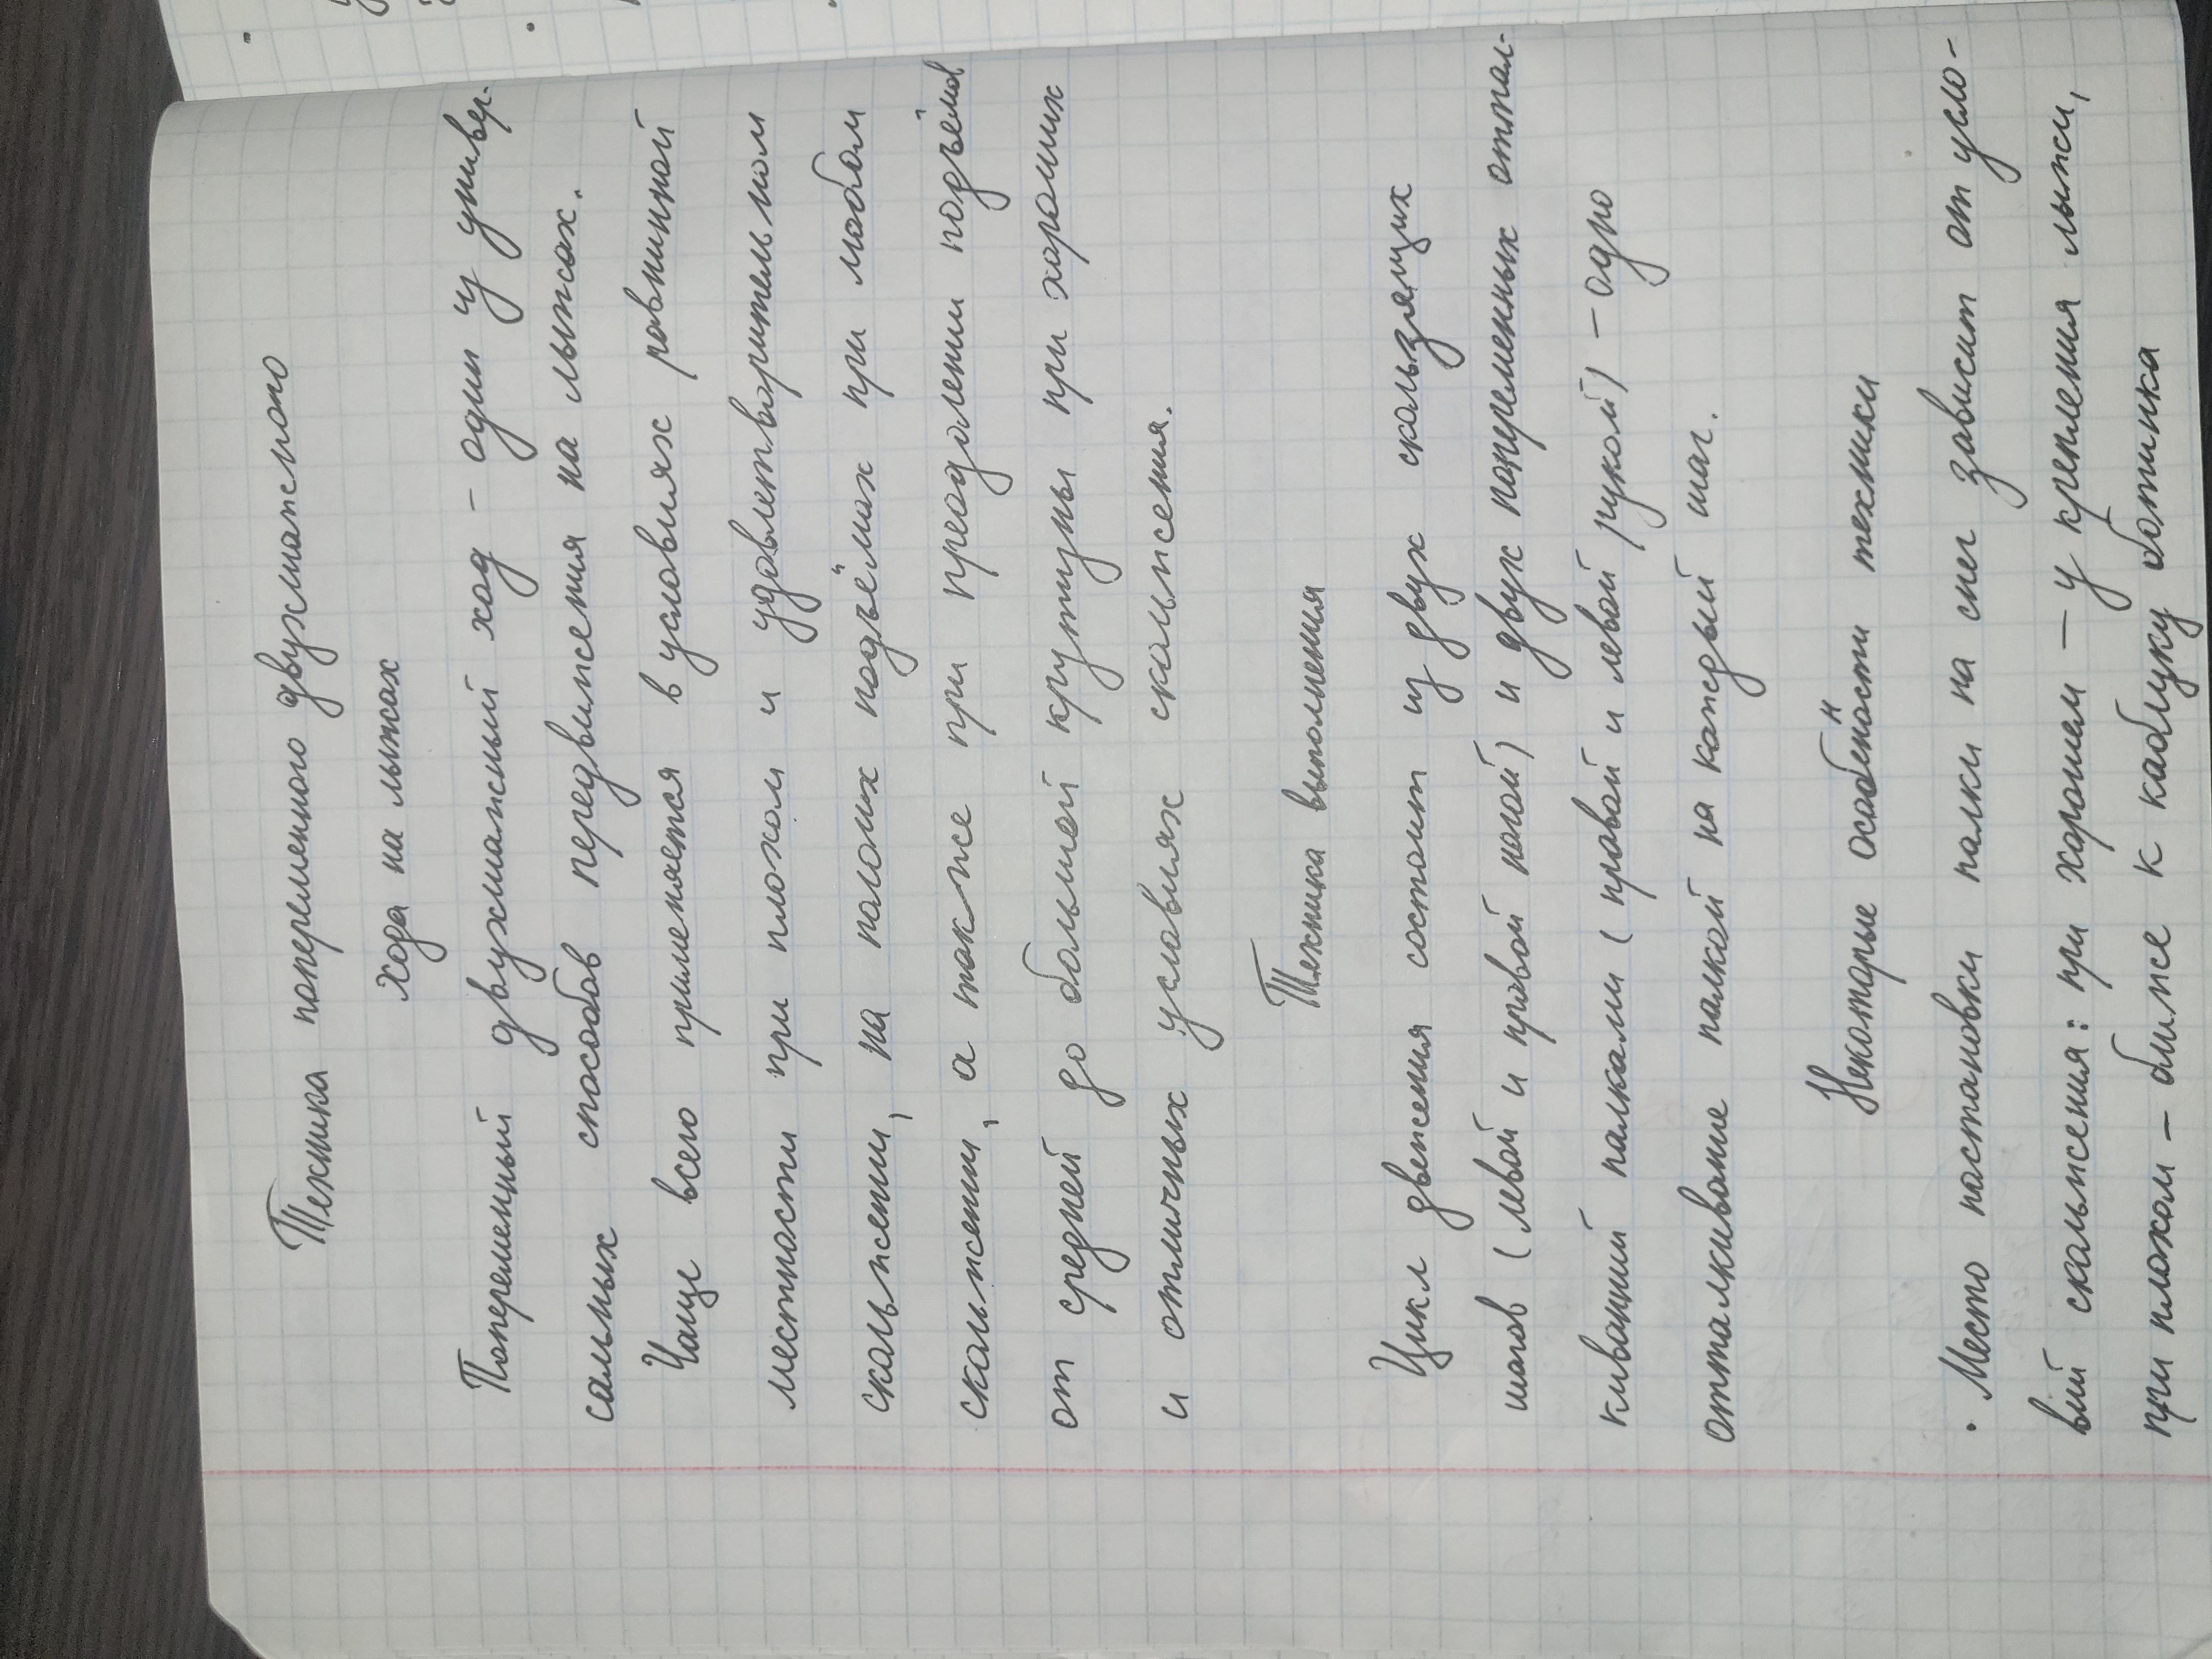 Техника попеременного двухшажного
хода на лыжах
Попеременный двухшажный ход - один из универ-
сальных способов передвижения на лыжах.
Чаще всего применяется в условиях равнинной
местности при плохом и удовлетворительном
скольжении, на пологих подъёмах при любом
скольжении, а также при преодолении подъёмов
от средней до большой крутизны при хороших
и отличных условиях скольжения.
Техника выполнения
Цикл движения состоит из двух скользящих
шагов (левой и правой ногой) и двух попеременных оттал-
киваний палками (правой и левой рукой) - одно
отталкивание палкой на каждый шаг.
Некоторые особенности техники
• Место постановки палки на снег зависит от усло-
вий скольжения: при хорошем - у крепления лыжи,
при плохом - ближе к каблуку ботинка